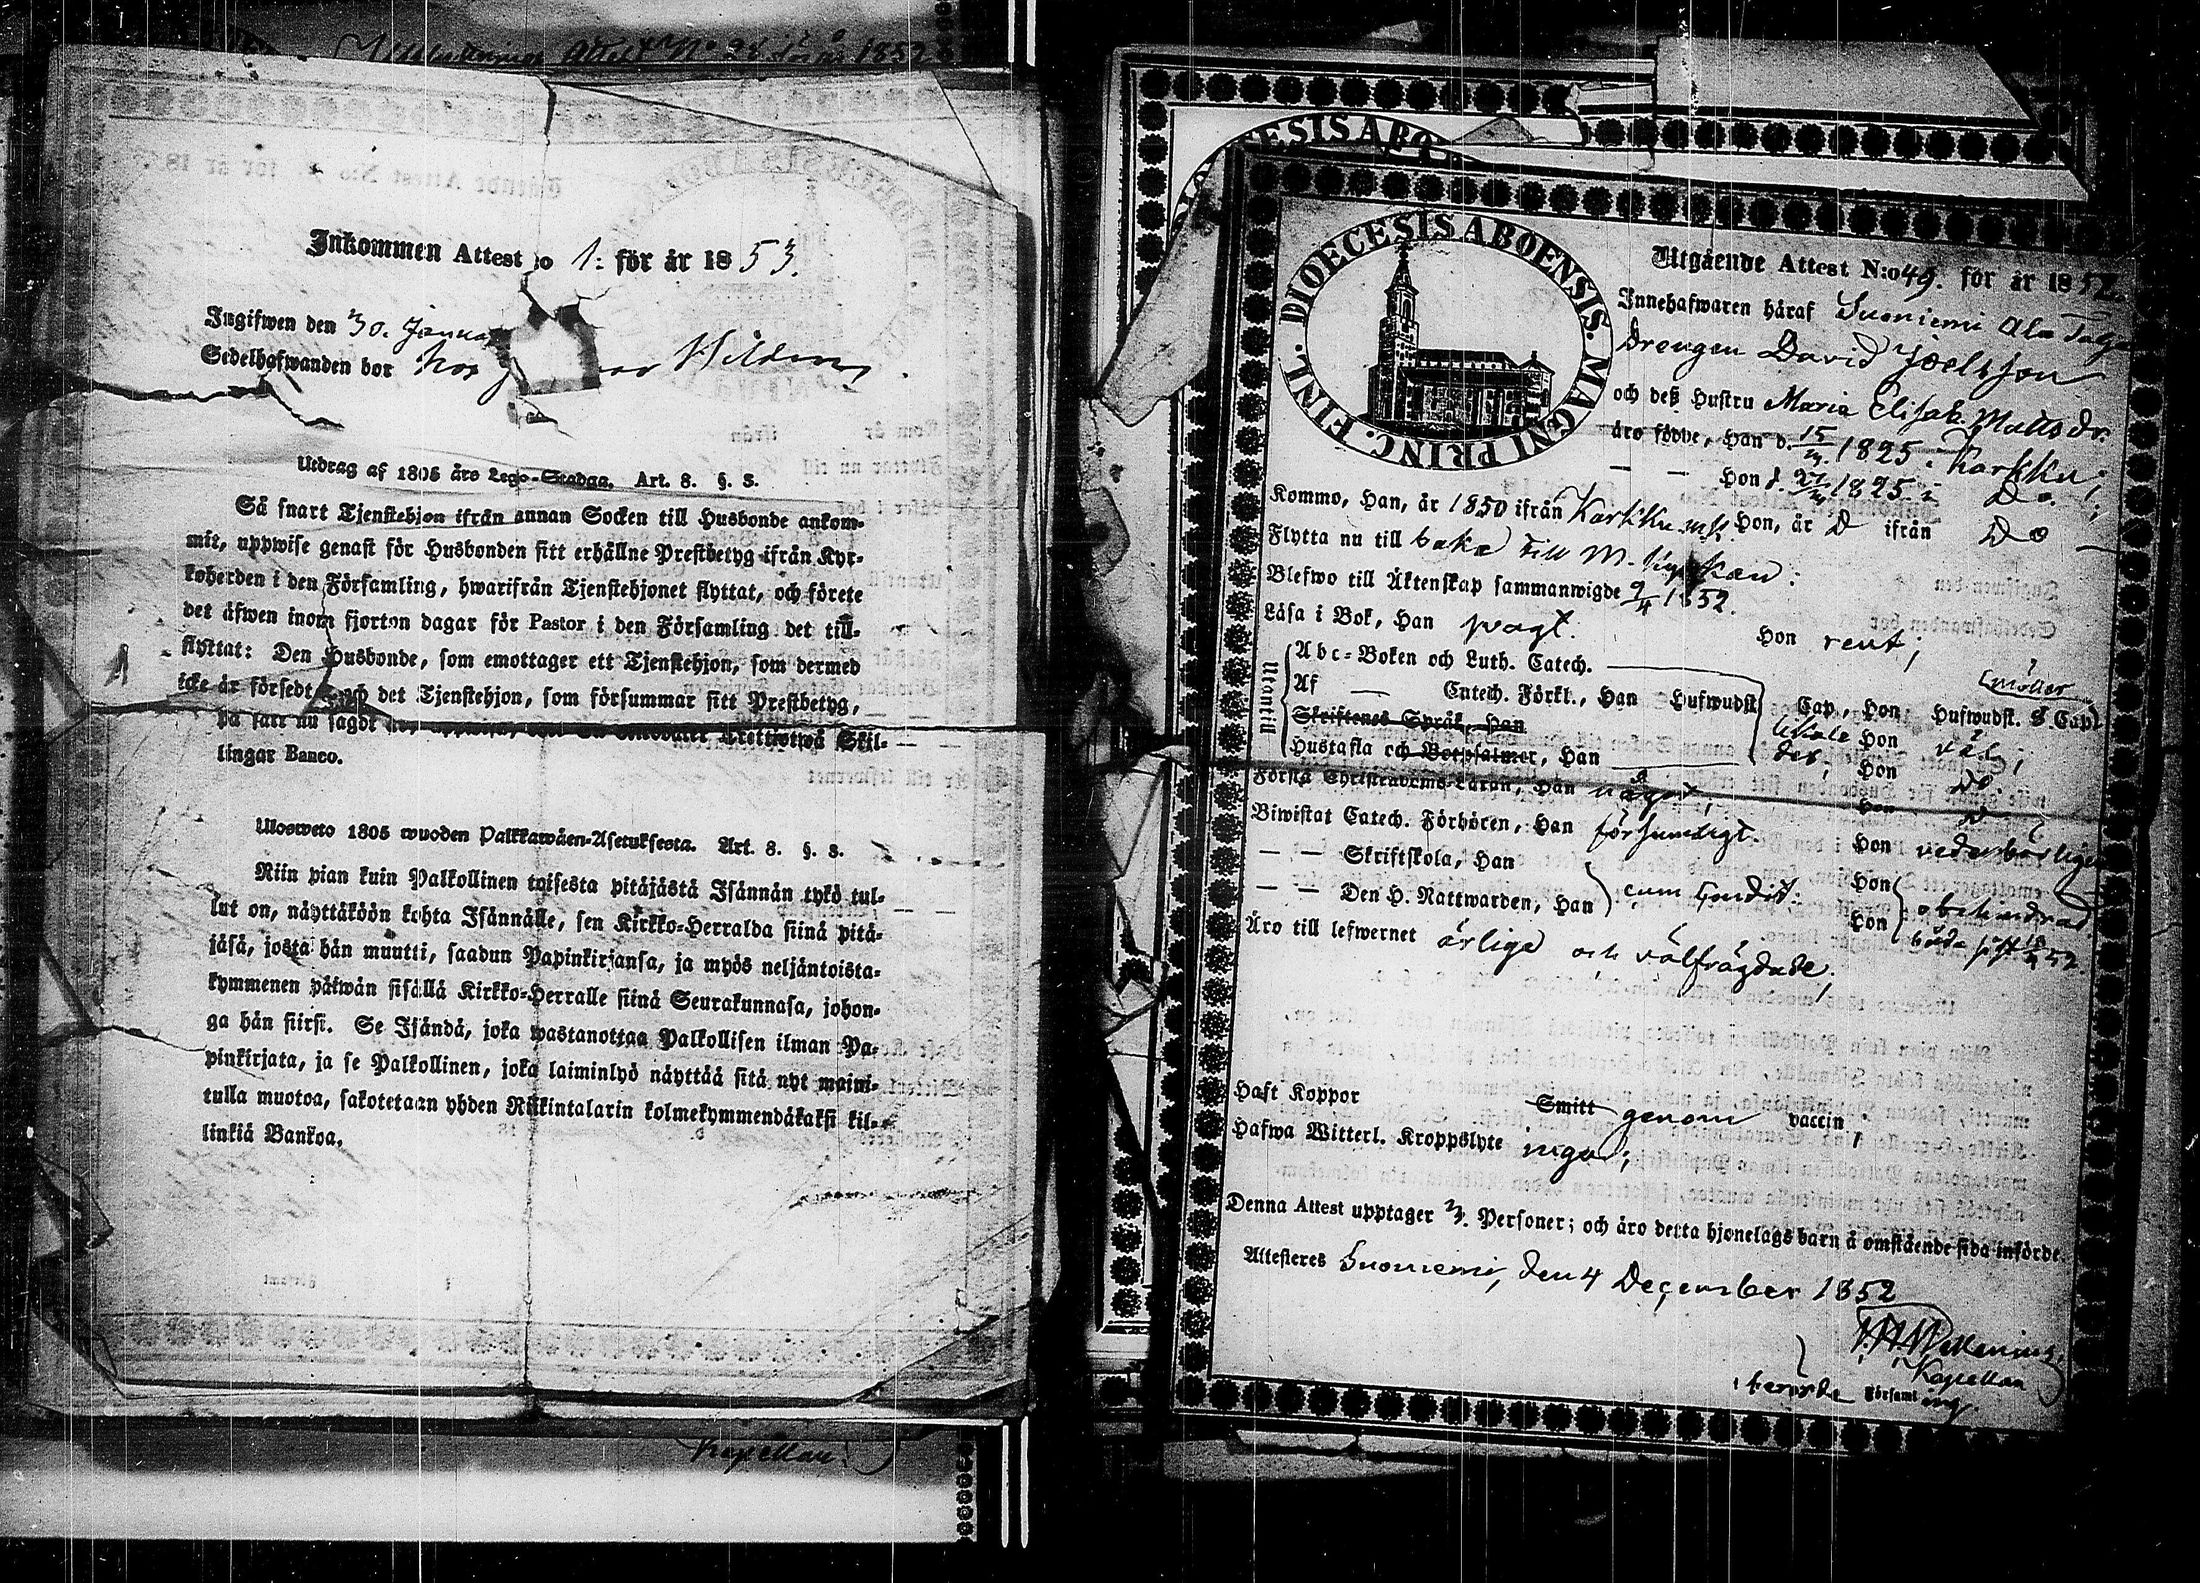 Attest No 1852
Inkommen Attest :o 1: för år 1853.
Ingifwen den 30. Janua
Sedelhafwanden bor hos
Utdrag af 1805 års Lego-Stadga. Art. 8. §. 3.
Så snart Tjenstehjon ifrån annan Socken till Husbonde ankom-
mit, uppwise genast för Husbonden sitt erhållne Prestbetyg ifrån Kyr-
koherden i den Församling, hwarifrån Tjenstehjonet flyttat, och förete
det äfwen inom fjorton dagar för Pastor i den Församling det till-
flyttat: Den Husbonde, som emottager ett Tjenstehjon, som dermed
icke är försedt och det Tjenstehjon, som försummar sitt Prestbetyg,
på sätt nu sagdt Trettiotwå Skil-
lingar Banco.
Ulosweto 1805 wuoden Palkkawäen-Asetuksesta. Art. 8. §. 3.
Niin pian kuin Palkollinen toisesta pitäjästä Isännän tykö tul-
lut on, näyttäköön kohta Isännälle, sen Kirkko-Herralda siinä pitä-
jäsä, josta hän muutti, saadun Papinkirjansa, ja myös neljäntoista-
kymmenen päiwän sisällä Kirkko-Herralle siinä Seurakunnasa, johon-
ga hän siirsi. Se Isändä, joka wastanottaa Palkollisen ilman Pa-
pinkirjata, ja se Palkollinen, joka laiminlyö näyttää sitä nyt maini-
tulla muotoa, sakotetaan yhden Riikintalarin kolmekymmendäkaksi kil-
linkiä Bankoa.
1
Kapellan.
DIOECESIS ABO
DIOECESIS ABOENSIS. MAGNI PRINC. FINL.
Utgående Attest N:o 49. för år 1852.
Innehafwaren häraf Suoniemi Ala
Drengen David Joelsson
och deß Hustru Maria Elisab. Mattsdr.
äro födde, Han d. 15/ 1825 i Karkku;
— — Hon d. 1825 i Do;
Kommo, Han, år 1850 ifrån Karkku Hon, år D ifrån Do
Flytta nu till baka till M. Kyrkan:
Blefwo till Äktenskap sammanwigde 9/4 1852.
Läsa i Bok, Han svagt. Hon rent;
Utantill
Abc-Boken och Luth. Catech.
Af — Catech. Förkl., Han Hufwudst. Cap, Hon Hufwudst. 8 Cap.
Skriftenes Språk, Han Hon väl;
Hustafla och Botpsalmer, Han Hon Do
Förstå Christendoms-Läran, Han något; Hon D
Biwistat Catech. Förhören, Han försumligt. Hon vederbörligen
— — Skriftskola, Han Hon
— — Den H. Nattwarden, Han Hon obehindrad
Äro till lefwernet ärliga och välfrägdade,
Haft Koppor Smitt genom vaccin,
Hafwa Witterl. Kroppslyte inga;
Denna Attest upptager 2. Personer; och äro detta hjonelags barn å omstående sida införde.
Attesteras Suoniemi, den 4 December 1852
Kapellan
berörde Församling.